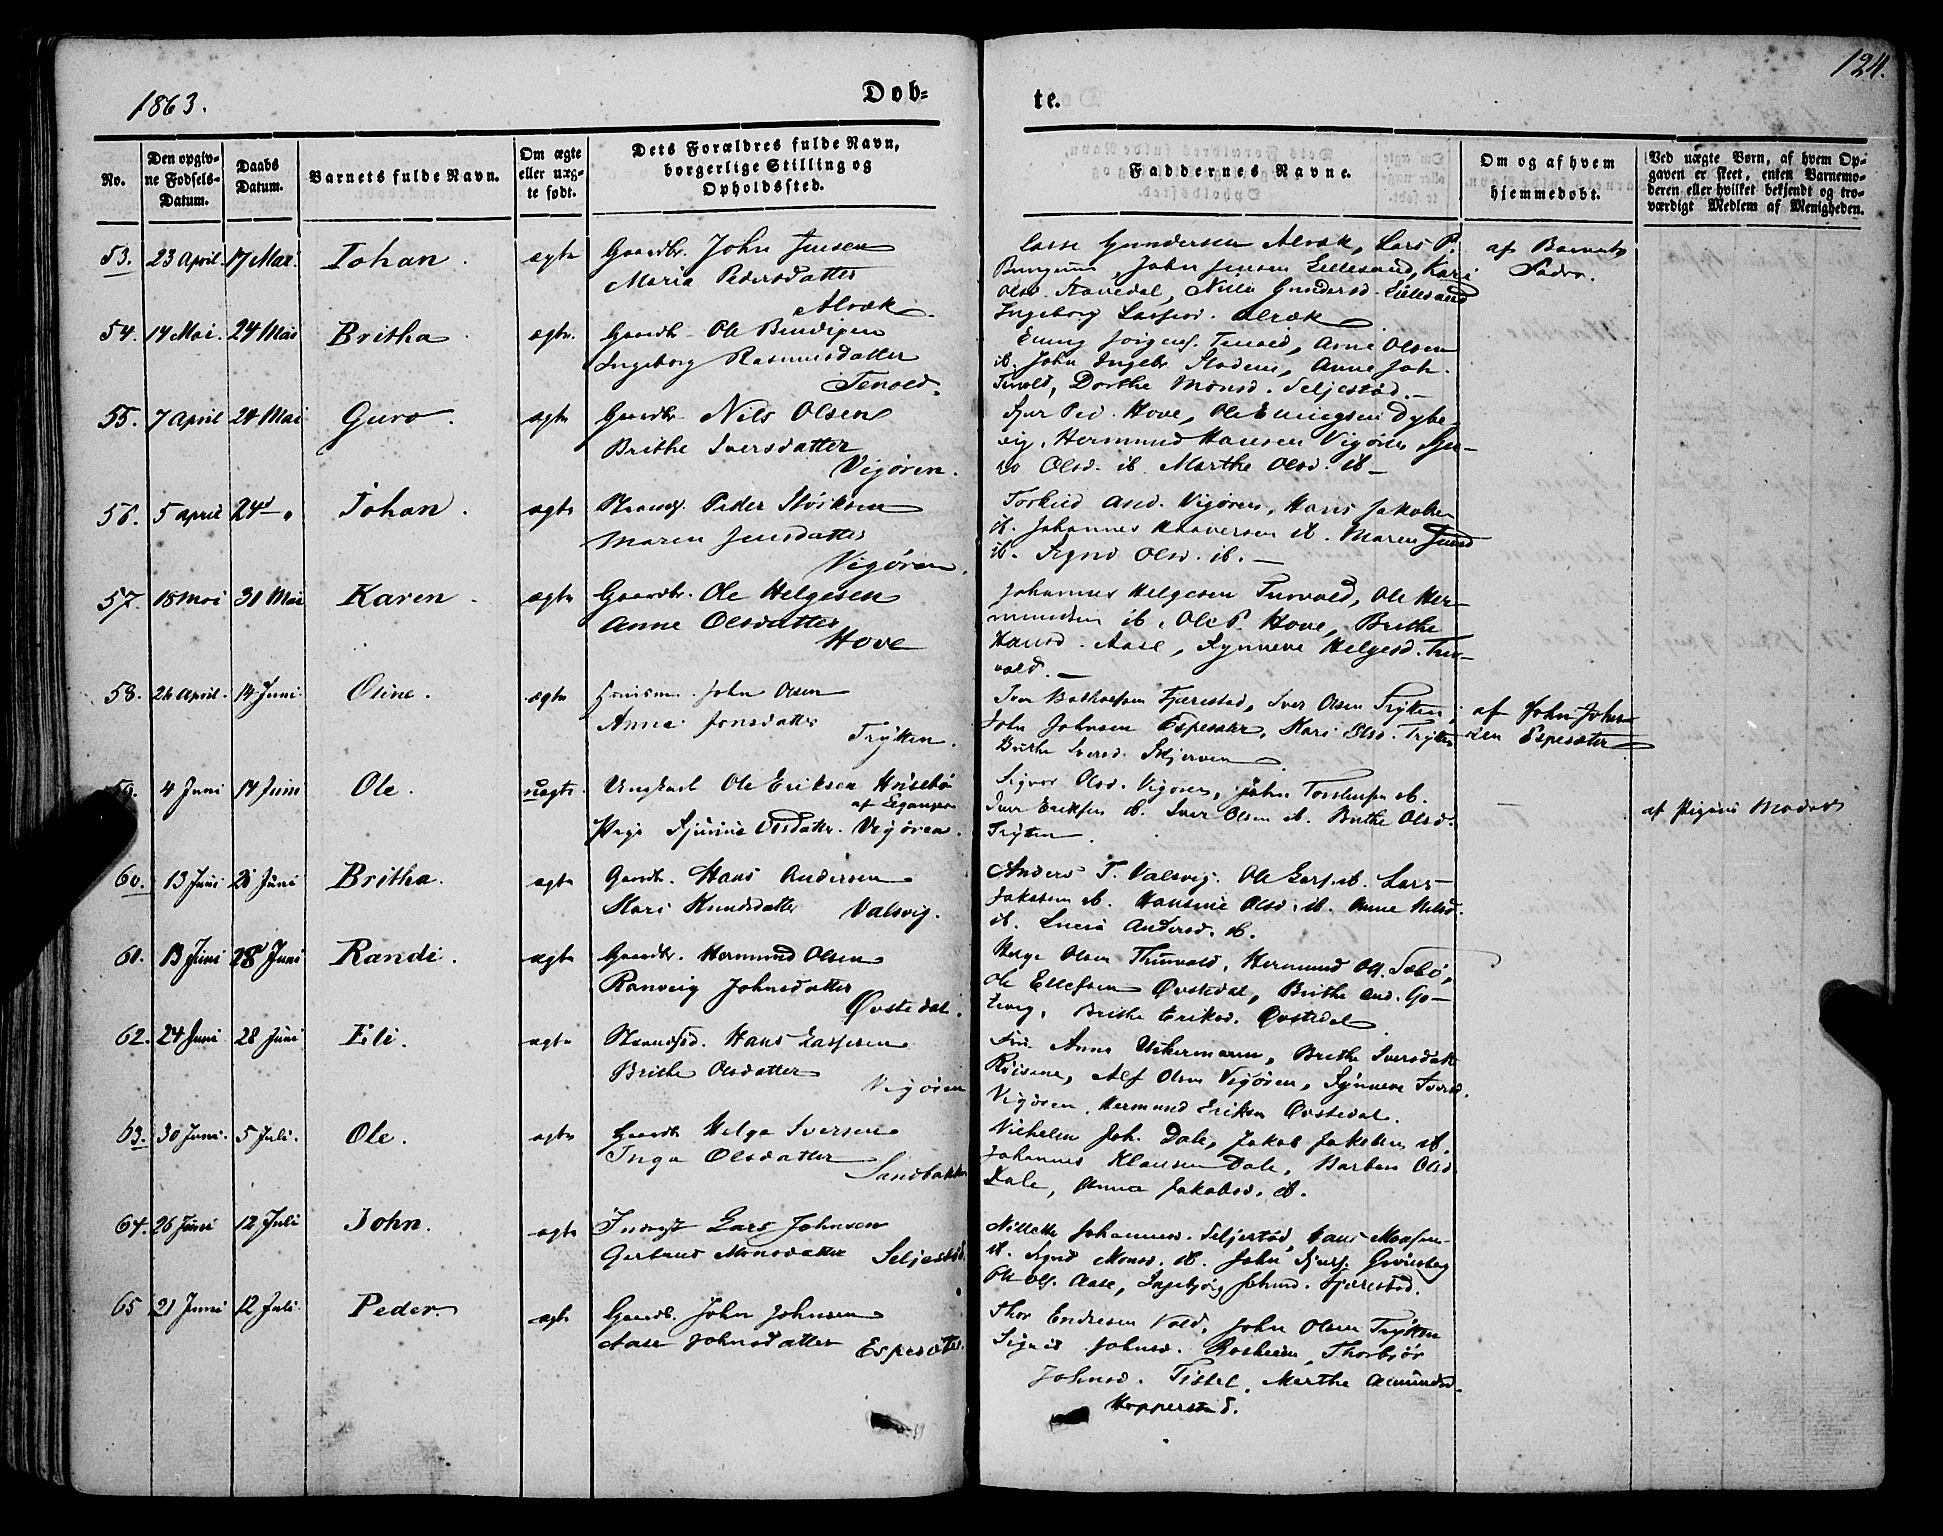 124.
1863.
Døb-
te.
No.
Den opgiv-
ne Fødsels-
Datum.
Daabs
Datum.
Barnets fulde Navn.
Om ægte
eller uæg-
te født.
Dets Forældres fulde Navn,
borgerlige Stilling og
Opholdssted.
Faddernes Navne.
Om og af hvem
hjemmedøbt.
Ved uægte Børn, af hvem Op-
gaven er skeet, enten Barnemo-
deren eller hvilket bekjendt og tro-
værdigt Medlem af Menigheden.
53. 23 April. 17 Mai. Johan. ægte Gaardbr. John Jensen
Maria Pedersdatter
Alræk.
Lasse Gundersen Alræk, Lars P.
John Jensen Lillesand, Kari
Olsd. Nille Gundersd. Lillesand
Ingeborg Lassesd. Alræk
af Barnets
Fader.
54. 14 Mai. 24 Mai Britha ægte. Gaardbr. Ole
Ingeborg Rasmusdatter
Tenold.
Tenold, Arne Olsen
ib. John Ingebr. Anne Joh.
Tenold, Dorthe Monsd. Seljestad.
55. 7 April 24 Mai Guro. ægte Gaardbr. Nils Olsen
Brithe Iversdatter
Vigøren.
Sjur Ped. Hove, Ole Dybe-
vig, Hermund Hansen Vigøren,
Olsd. ib. Marthe Olsd. ib
56. 5 April 24 Johan. ægte Peder
Maren Jensdatter
Vigøren.
And. Vigøren, Hans Jakobs.
ib. Johannes ib. Maren Jensd
ib. Olsd. ib.
57. 18 Mai 31 Mai Karen. ægte Gaardbr. Ole Helgesen
Anne Olsdatter
Hove
Johannes Helgesen Ole Her-
mundsen ib. Ole P. Hove, Brithe
Hansd. Aase, Synneve Helgesd.
vold.
58. 26 April. 14 Juni Oline. ægte Huusm. John Olsen
Anna Jonsdatter
Trytten.
Fjærestad, Iver Olsen Trytten,
John Johnsen Espesæter, Kari Olsd. Trytten
Brithe Iversd. Skjerven
af John John-
sen Espesæter
59. 4 Juni 14 Juni Ole. uægte. Ungkarl Ole Eriksen
af
Pige Olsdatter. Vigøren.
Olsd. Vigøren, John ib.
Eriksen ib. Iver Olsen ib. Brithe Olsd.
Trytten.
af Pigens Moder
60. 13 Juni 28 Juni Britha. ægte Gaardbr. Hans Andersen
Kari Knudsdatter Valsvig.
Anders T. Valsvig. Ole ib. Lars
Jakobsen ib. Hansine Olsd. ib. Anne Nilsd.
ib. Lucia Andersd. ib.
61. 13 Juni 28 Juni Randi. ægte Gaardbr. Hermund Olsen
Ranveig Johnsdatter
Øvstedal.
Helge Olsen Hermund Ols. Sæbø,
Ole Ellefsen Øvstedal, Brithe And.
Brithe Eriksd. Øvstedal
62. 24 Juni 28 Juni Eli. ægte Hans Lassesen
Brithe Olsdatter
Vigøren
Anna Uchermann, Brithe Iversdatt
Alf Olsen Vigøren, Synneve Iversd.
Vigøren, Hermund Eriksen Øvstedal.
63. 30 Juni. 5 Juli. Ole. ægte Gaardbr. Helge Iversen
Inga Olsdatter
Sandbakken
Joh. Dale, Jakob Jakobsen ib.
Johannes Klausen Dale, Barbra Olsd
Dale, Anna Jakobsd. ib.
64. 26 Juni 12 Juli John. ægte Inderst Lars Johnsen
Monsdatter Seljestad.
Johannesd. Seljestad, Hans
ib. Monsd. ib. John
Ole Ols. Aase, Ingebjør Fjærestad.
65 21 Juni 12 Juli. Peder ægte Gaardbr. John Johnsen
Aase Johnsdatter Espesæter.
Thor Endresen Vold, John Olsen Trytten
Sigrid Johnsd. Thorbjør
Johnsd. Tistel, Marthe Amundsd.
Hopperstad.